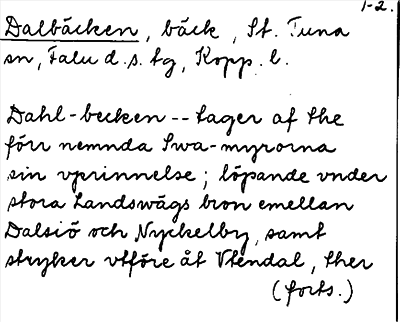 1-2.
Dalbäcken, bäck, St. Tuna
sn, Falu d.s. tg, Kopp. l.
Dahl-becken -- tager af the
förr nemnda Swa-myrorna
sin vprinnelse; löpande vnder
stora Landswägs bron emellan
Dalsiö och Nyckelby, samt
stryker vtföre åt Vtendal, ther
(forts.)